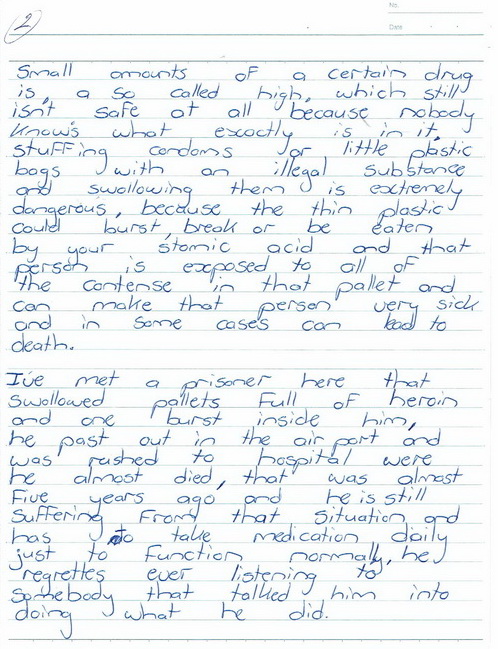 No.
Date
2
Small amounts of a certain drug
is, a so called high, which still
isn't safe at all because nobody
know's what exactly is in it,
stuffing condoms or little plastic
bags with an illegal substance
and swollowing them is extremely
dangerous, because the thin plastic
could burst, break or be eaten
by your stomic acid and that
person is exposed to all of
the contense in that pallet and
can make that person very sick
and in some cases can lead to
death.
I've met a prisoner here that
swollowed pallets full of heroin
and one burst inside him,
he past out in the air port and
was rushed to hospital were
he almost died, that was almost
five years ago and he is still
suffering from that situation and
has to take medication daily
just to function normally, he
regrettes ever listening to
somebody that talked him into
doing what he did.